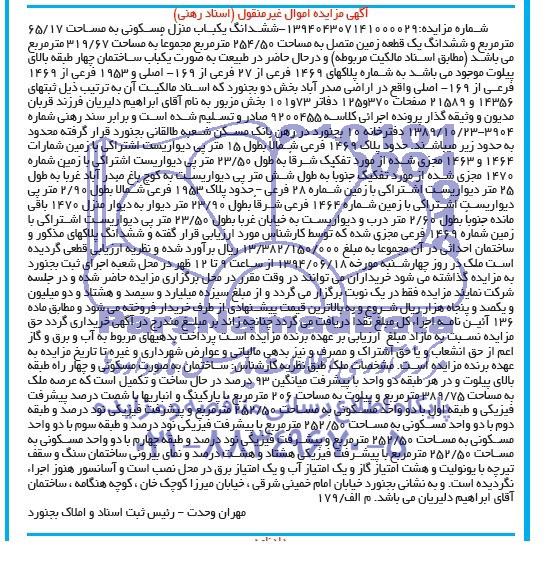 آگهی مزایده اموال غیرمنقول (اسناد رهنی)
شماره مزایده:۱۳۹۴۰۴۳۰۷۱۴۱۰۰۰۰۲۹-ششدانگ یکباب منزل مسکونی به مساحت ۶۵/۱۷
مترمربع و ششدانگ یک قطعه زمین متصل به مساحت ۲۵۴/۵۰ مترمربع مجموعا به مساحت ۳۱۹/۶۷ مترمربع
می باشد (مطابق اسناد مالکیت مربوطه) و درحال حاضر در طبیعت به صورت یکباب ساختمان چهار طبقه بالای
پیلوت موجود می باشد به شماره پلاکهای ۱۴۶۹ فرعی از ۲۷ فرعی از ۱۶۹- اصلی و ۱۹۵۳ فرعی از ۱۴۶۹
فرعی از ۱۶۹- اصلی واقع در اراضی صدر آباد بخش دو بجنورد که اسناد مالکیت آن به ترتیب ذیل ثبتهای
۱۴۳۵۶ و ۲۱۵۸۹ صفحات ۳۷۰و۱۲۵ دفاتر ۷۳و۱۰۱ بخش مزبور به نام آقای ابراهیم دلیریان فرزند قربان
مدیون و وثیقه گذار پرونده اجرائی کلاسه ۹۲۰۰۴۵۵ صادر و تسلیم شده است و برابر سند رهنی شماره
۳۹۰۴-۱۳۸۹/۱۰/۲۳ دفترخانه ۱۰ بجنورد در رهن بانک مسکن شعبه طالقانی بجنورد قرار گرفته محدود
به حدود زیر میباشند: حدود پلاک ۱۴۶۹ فرعی شمالا بطول ۱۵ متر پی دیواریست اشتراکی با زمین شمارات
۱۴۶۴ و ۱۴۶۳ مجزی شده از مورد تفکیک شرقا به طول ۲۳/۵۰ متر پی دیواریست اشتراکی با زمین شماره
۱۴۷۰ مجزی شده از مورد تفکیک جنوبا به طول شش متر پی دیواریست به کوچ باغ صدر آباد غربا به طول
۲۵ متر دیواریست اشتراکی با زمین شماره ۲۸ فرعی - حدود پلاک ۱۹۵۳ فرعی شمالا بطول ۲/۹۰ متر پی
دیواریست اشتراکی با زمین شماره ۱۴۶۴ فرعی شرقا بطول ۲۳/۹۰ متر دیوار به دیوار منزل ۱۴۷۰ باقی
مانده جنوبا بطول ۲/۶۰ متر درب و دیواریست به خیابان غربا بطول ۲۳/۵۰ متر پی دیواریست اشتراکی با
زمین شماره ۱۴۶۹ فرعی مجزی شده که توسط کارشناس مورد ارزیابی قرار گفته و ششدانگ پلاکهای مذکور و
ساختمان احداثی در آن مجموعا به مبلغ ۱۳/۳۸۲/۱۵۰/۰۰۰ ریال برآورد شده و نظریه ارزیابی قطعی گردیده
است ملک در روز چهارشنبه مورخه ۱۳۹۴/۰۶/۱۸ از ساعت ۹ تا ۱۲ ظهر در محل شعبه اجرای ثبت بجنورد
به مزایده گذاشته می شود خریداران می توانند در وقت مقرر در محل برگزاری مزایده حاضر شده و در جلسه
شرکت نمایند مزایده فقط در یک نوبت برگزار می گردد و از مبلغ سیزده میلیارد و سیصد و هشتاد و دو میلیون
و یکصد و پنجاه هزار ریال شروع و به بالاترین قیمت پیشنهادی از طرف خریدار فروخته می شود و مطابق ماده
۱۳۶ آئین نامه اجراء کل مبلغ نقدا دریافت می گردد چنانچه زائد بر مبلغ مندرج در آگهی خریداری گردد حق
مزایده نسبت به مازاد مبلغ ارزیابی بر عهده برنده مزایده است پرداخت بدهیهای مربوط به آب و برق و گاز
اعم از حق انشعاب و یا حق اشتراک و مصرف و نیز بدهی مالیاتی و عوارض شهرداری و غیره تا تاریخ مزایده به
عهده برنده مزایده است. مشخصات ملک طبق نظریه کارشناس: ساختمان به صورت مسکونی و چهار راه طبقه
بالای پیلوت و در هر طبقه دو واحد با پیشرفت میانگین ۹۳ درصد در حال ساخت و تکمیل است که عرصه ملک
به مساحت ۳۸۹/۷۵ مترمربع و پیلوت به مساحت ۲۰۶ مترمربع با پارکینگ و انباریها با شصت درصد پیشرفت
فیزیکی و طبقه اول با دو واحد مسکونی به مساحتی ۲۵۲/۵۰ مترمربع و پیشرفت فیزیکی نود درصد و طبقه
دوم با دو واحد مسکونی به مساحت ۲۵۲/۵۰ مترمربع با پیشرفت فیزیکی نود درصد و طبقه سوم با دو واحد
مسکونی به مساحت ۲۵۲/۵۰ مترمربع و پیشرفت فیزیکی نود درصد و طبقه چهارم با دو واحد مسکونی به
مساحت ۲۵۲/۵۰ مترمربع با پیشرفت فیزیکی هشتاد و هشت درصد و نمای بیرونی ساختمان سنگ و سقف
تیرچه با یونولیت و هشت امتیاز گاز و یک امتیاز آب و یک امتیاز برق در محل نصب است و آسانسور هنوز اجراء
نگردیده است. و به نشانی بجنورد خیابان امام خمینی شرقی ، خیابان میرزا کوچک خان ، کوچه هنگامه ، ساختمان
آقای ابراهیم دلیریان می باشد. م الف/۱۷۹
مهران وحدت - رئیس ثبت اسناد و املاک بجنورد
۰۲۱-۸۸۳۴۹۶۷۰-۵